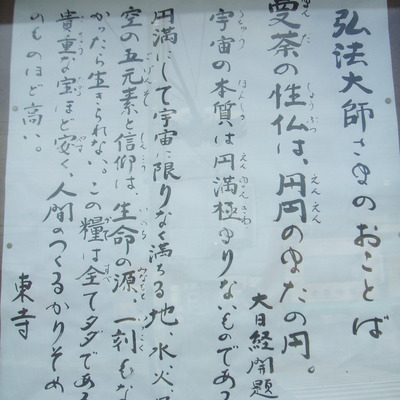 弘法大師さまのおことば
曼荼の性仏は、円円のまたの円。
大日経開題
宇宙の本質は円満極まりないものであ
円満にして宇宙に限りなく満ちる地、水、火、
空の五元素と信仰は、生命の源、一刻もな
かったら生きられない。この糧は全てタダであ
貴重な宝ほど安く、人間のつくるかりそめ
のものほど高い。
東寺